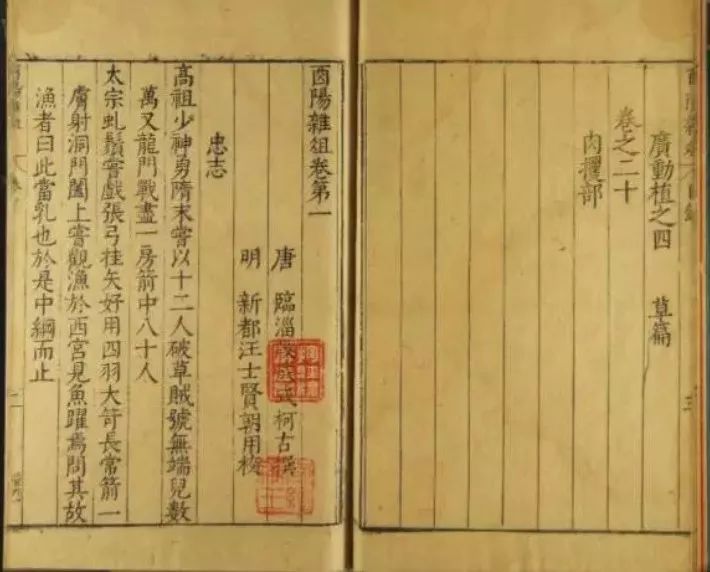 廣動植之四 草篇
卷之二十
肉攫部
酉陽雜俎卷第一
唐 臨淄段成式柯古撰
明 新都汪士賢朝用校
忠志
高祖少神勇隋末嘗以十二人破草賊號無端兒數
萬又龍門戰盡一房箭中八十人
太宗虬鬚嘗戲張弓挂矢好用四羽大笴長常箭一
膚射洞門闔上嘗觀漁於西宮見魚躍焉問其故
漁者曰此當乳也於是中網而止